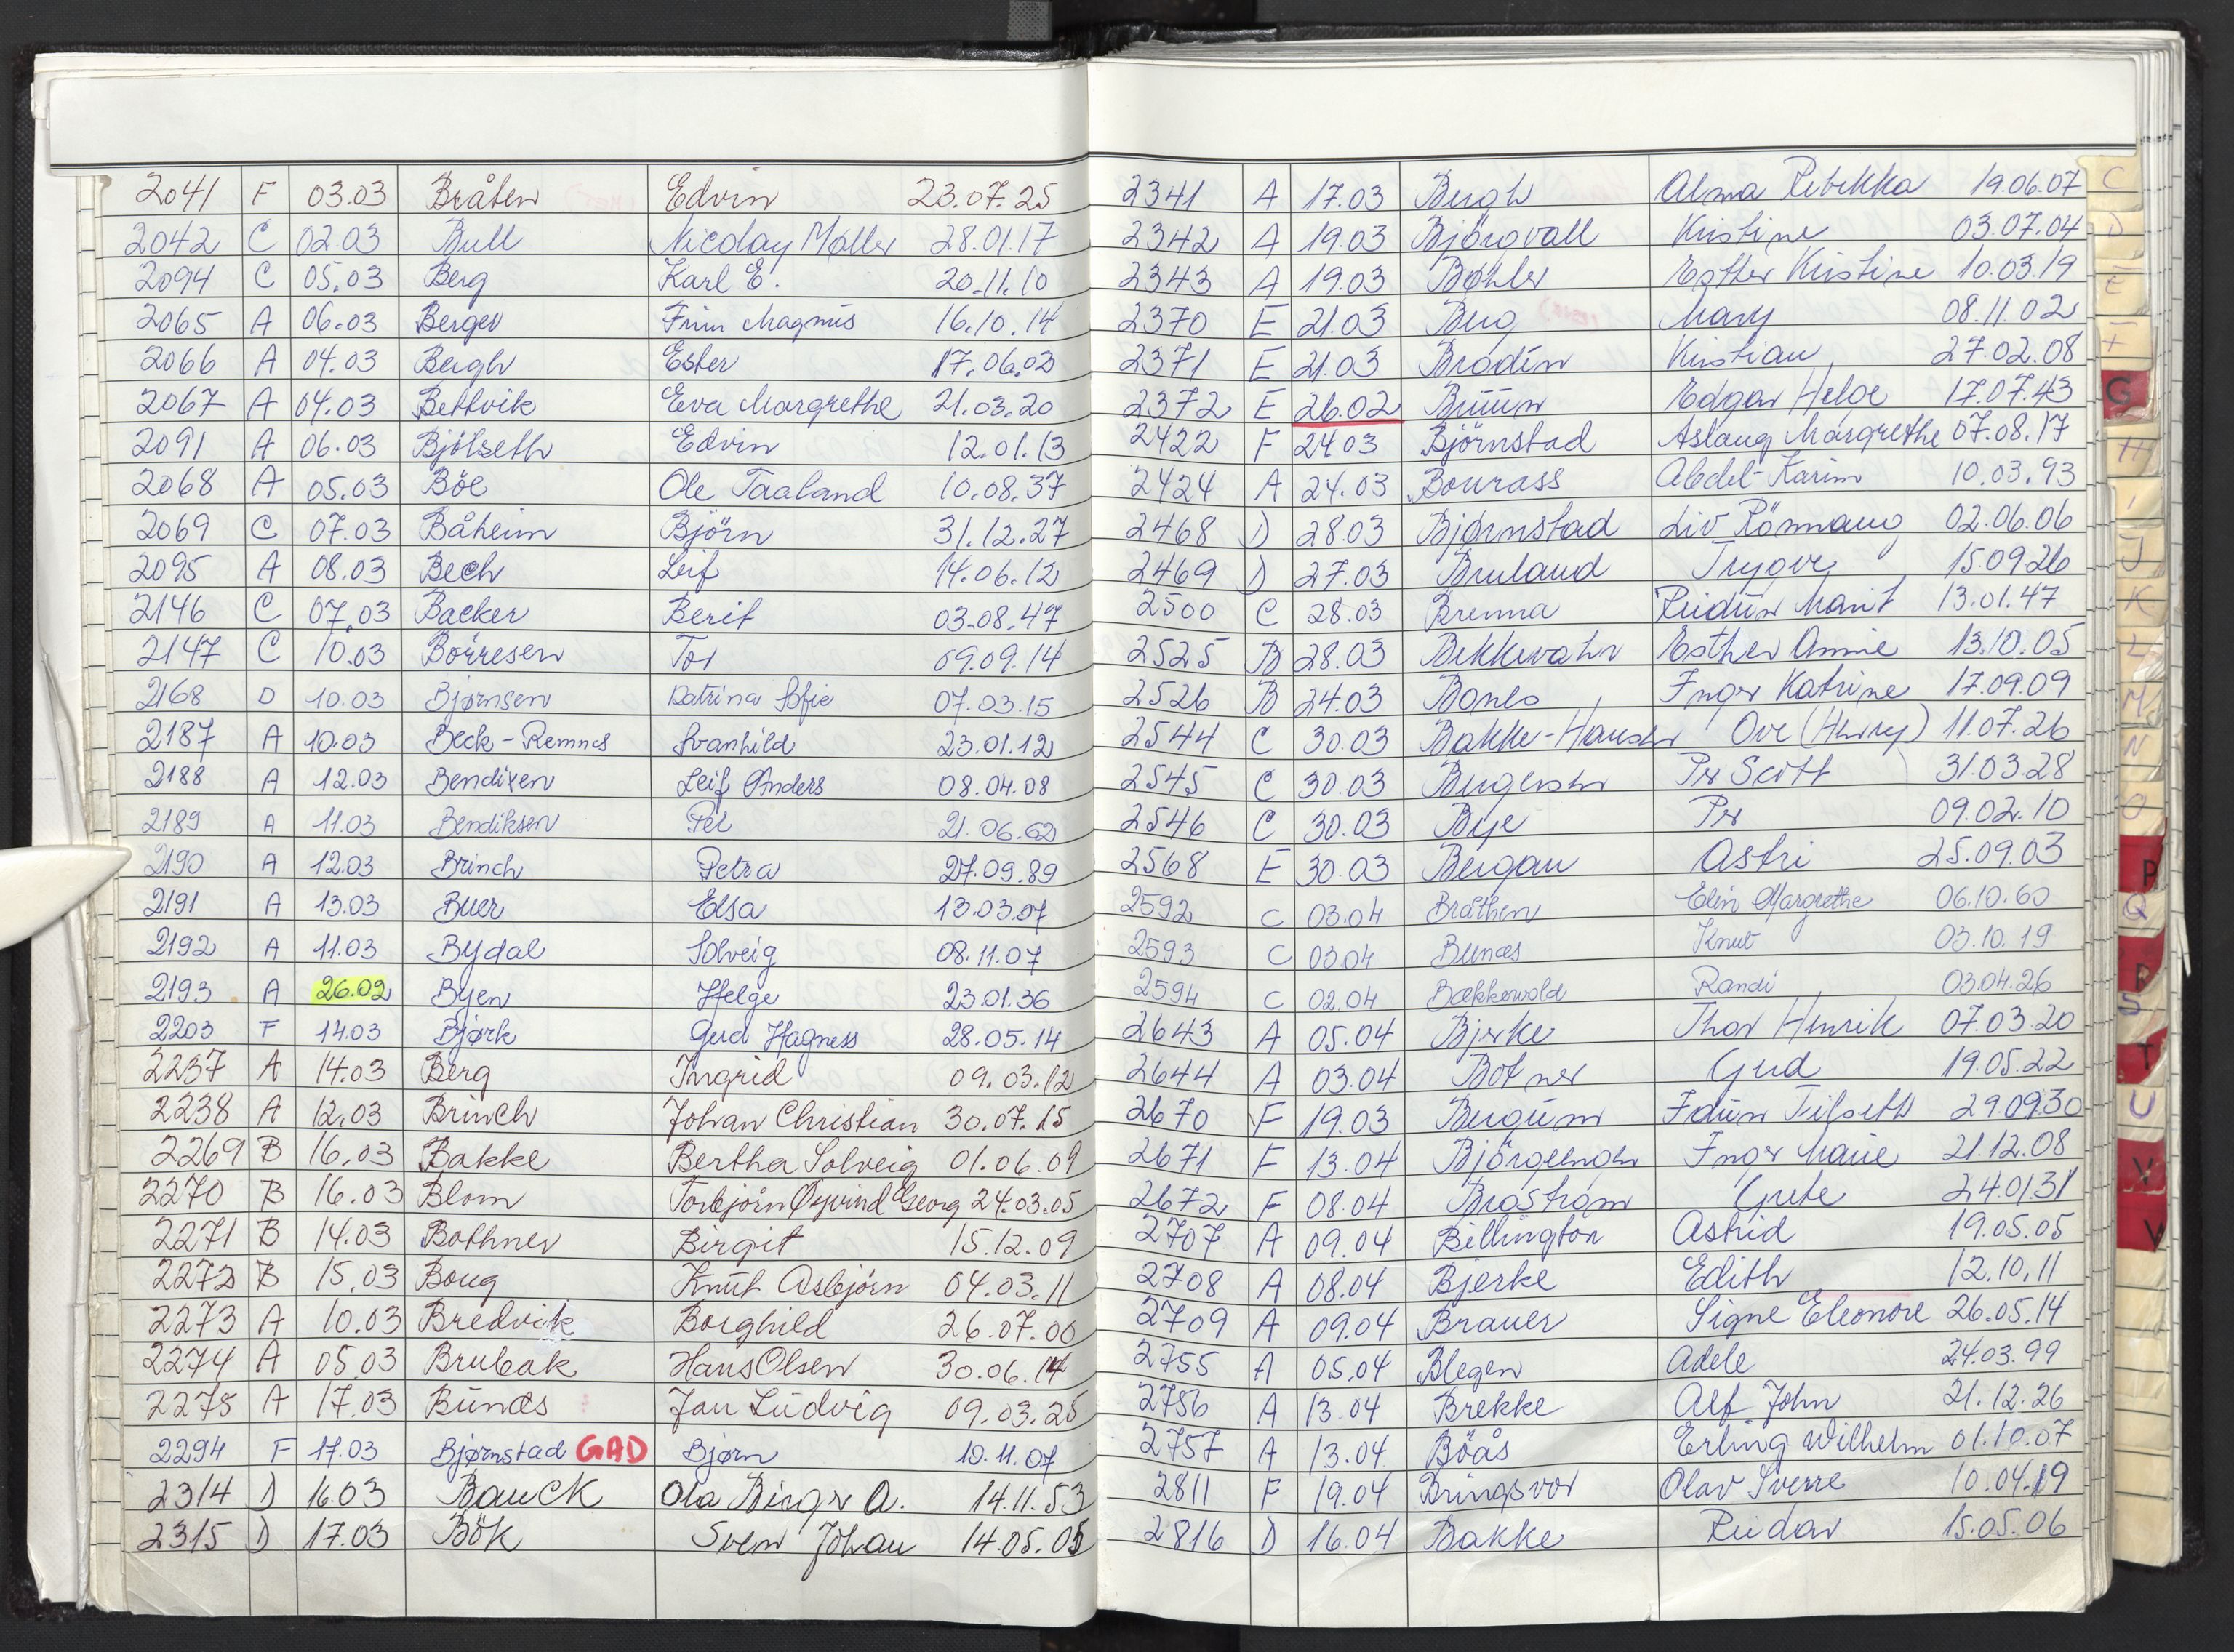 2041 F 03.03 Bråten Edvin 23.07.25
2042 C 02.03 Bull Nicolay Møller 28.01.17
2094 C 05.03 Berg Karl E. 20.11.10
2065 A 06.03 Berger Finn Magnus 16.10.14
2066 A 04.03 Bergh Ester 17.06.02
2067 A 04.03 Bettvik Eva Margrethe 21.03.20
2091 A 06.03 Bjölseth Edvin 12.01.13
2068 A 05.03 Böe Ole Taaland 10.08.37
2069 C 07.03 Båheim Björn 31.12.27
2095 A 08.03 Bech Leif 14.06.12
2146 C 07.03 Backer Berit 03.08.47
2147 C 10.03 Börresen Tor 09.09.14
2168 D 10.03 Bjørnsen Katrina Sofie 07.03.15
2187 A 10.03 Beck-Remnes Svanhild 23.01.12
2188 A 12.03 Bendixen Leif Anders 08.04.08
2189 A 11.03 Bendiksen Per 21.06.62
2190 A 12.03 Brinch Petra 27.09.89
2191 A 13.03 Buer Elsa 13.03.07
2192 A 11.03 Bydal Solveig 08.11.07
2193 A 26.02 Byen Helge 23.01.36
2203 F 14.03 Bjørk Gerd Hagness 28.05.14
2237 A 14.03 Berg Ingrid 09.03.12
2238 A 12.03 Brinch Johan Christian 30.07.15
2269 B 16.03 Bakke Bertha Solveig 01.06.09
2270 B 16.03 Blom Torbjørn Øyvind Georg 24.03.05
2271 B 14.03 Bothner Birgit 15.12.09
2272 B 15.03 Boug Knut Asbjørn 04.03.11
2273 A 10.03 Bredvik Borghild 26.07.00
2274 A 05.03 Brubak Hans Olsen 30.06.14
2275 A 17.03 Bunæs Jan Ludvig 09.03.25
2294 F 17.03 Bjørnstad GAD Bjørn 10.11.07
2314 D 16.03 Bauck Ola Birger A. 14.11.53
2315 D 17.03 Bök Sven Johan 14.05.05
2341 A 17.03 Bergh Alma Rebekka 19.06.07 C
2342 A 19.03 Björgvall Kristine 03.07.04 D
2343 A 19.03 Bøhler Esther Kristine 10.03.19 E
2370 E 21.03 Berg Mary 08.11.02
2371 E 21.03 Brodin Kristian 27.02.08 F
2372 E 26.02 Bruun Edgar Helge 17.07.43 G
2422 F 24.03 Björnstad Aslaug Margrethe 07.08.17 H
2424 A 24.03 Bourass Abdel-Karim 10.03.93 I
2468 D 28.03 Bjørnstad Liv Rönnaug 02.06.06
2469 D 27.03 Bruland Trygve 15.09.26 J
2500 C 28.03 Brenna Reidun Marit 13.01.47 K
2525 B 28.03 Bekkevahr Esther Annie 13.10.05 L
2526 B 24.03 Bones Inger Katrine 17.09.09 M
2544 C 30.03 Bakke-Hansen Ove (Henry) 11.07.26 N
2545 C 30.03 Bergersen Per Scott 31.03.28
2546 C 30.03 Bye Per 09.02.10 O
2568 E 30.03 Bergan Astri 25.09.03 P
2592 C 03.04 Bråthen Elin Margrethe 06.10.60 Q
2593 C 03.04 Bunæs Knut 03.10.19
2594 C 02.04 Bækkevold Randi 03.04.26 R
2643 A 05.04 Bjerke Thor Henrik 07.03.20 S
2644 A 03.04 Botner Gerd 19.05.22 T
2670 F 19.03 Bergum Idun Tifseth 29.09.30 U
2671 F 13.04 Björgengen Inger Marie 21.12.08 V
2672 F 08.04 Broström Grete 24.01.31
2707 A 09.04 Billington Astrid 19.05.05
2708 A 08.04 Bjerke Edith 12.10.11
2709 A 09.04 Brauer Signe Eleonore 26.05.14
2755 A 05.04 Blegen Adele 24.03.99
2756 A 13.04 Brekke Alf John 21.12.26
2757 A 13.04 Böås Erling Wilhelm 01.10.07
2811 F 19.04 Bringsvor Olav Sverre 10.04.19
2816 D 16.04 Bakke Reidar 15.05.06